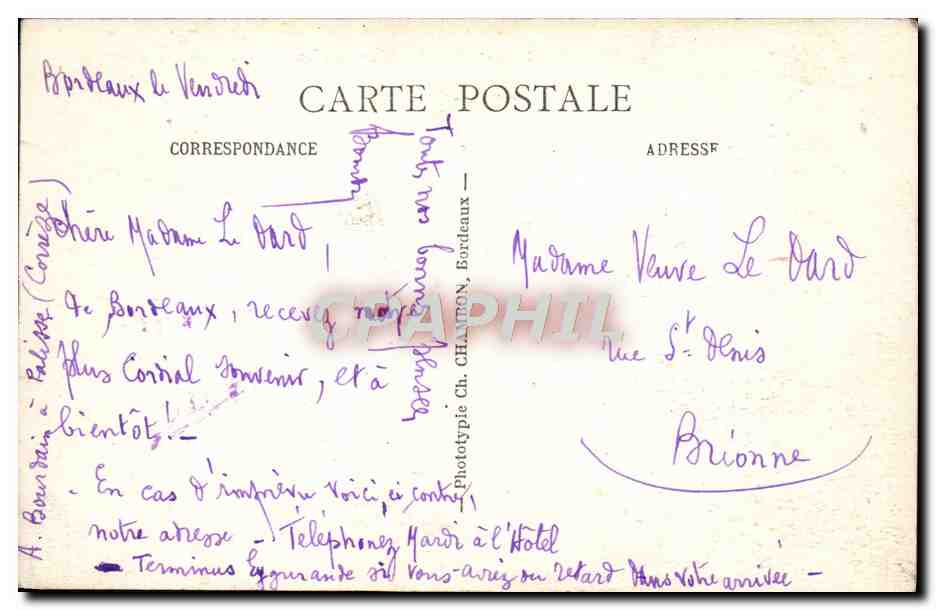 Bordeaux le Vendredi
CARTE POSTALE
CORRESPONDANCE
ADRESSE
Chère Madame Le Dard,
de Bordeaux, recevez
plus Cordial souvenir, et à
bientôt ! —
- En cas d'imprévu voici, ci contre,
notre adresse - Téléphonez Mardi à l'Hôtel
- Terminus Eygurande si vous aviez du retard dans votre arrivée -
A. Bourdain à Palisse (Corrèze)
Toutes nos bonnes
— Phototypie Ch. CHAMBON, Bordeaux —
Madame Veuve Le Dard
rue St Denis
Brionne
CPAPHIL